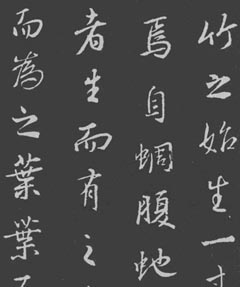 竹之始生一寸
焉自蜩腹蛇
者生而有之
而為之葉葉